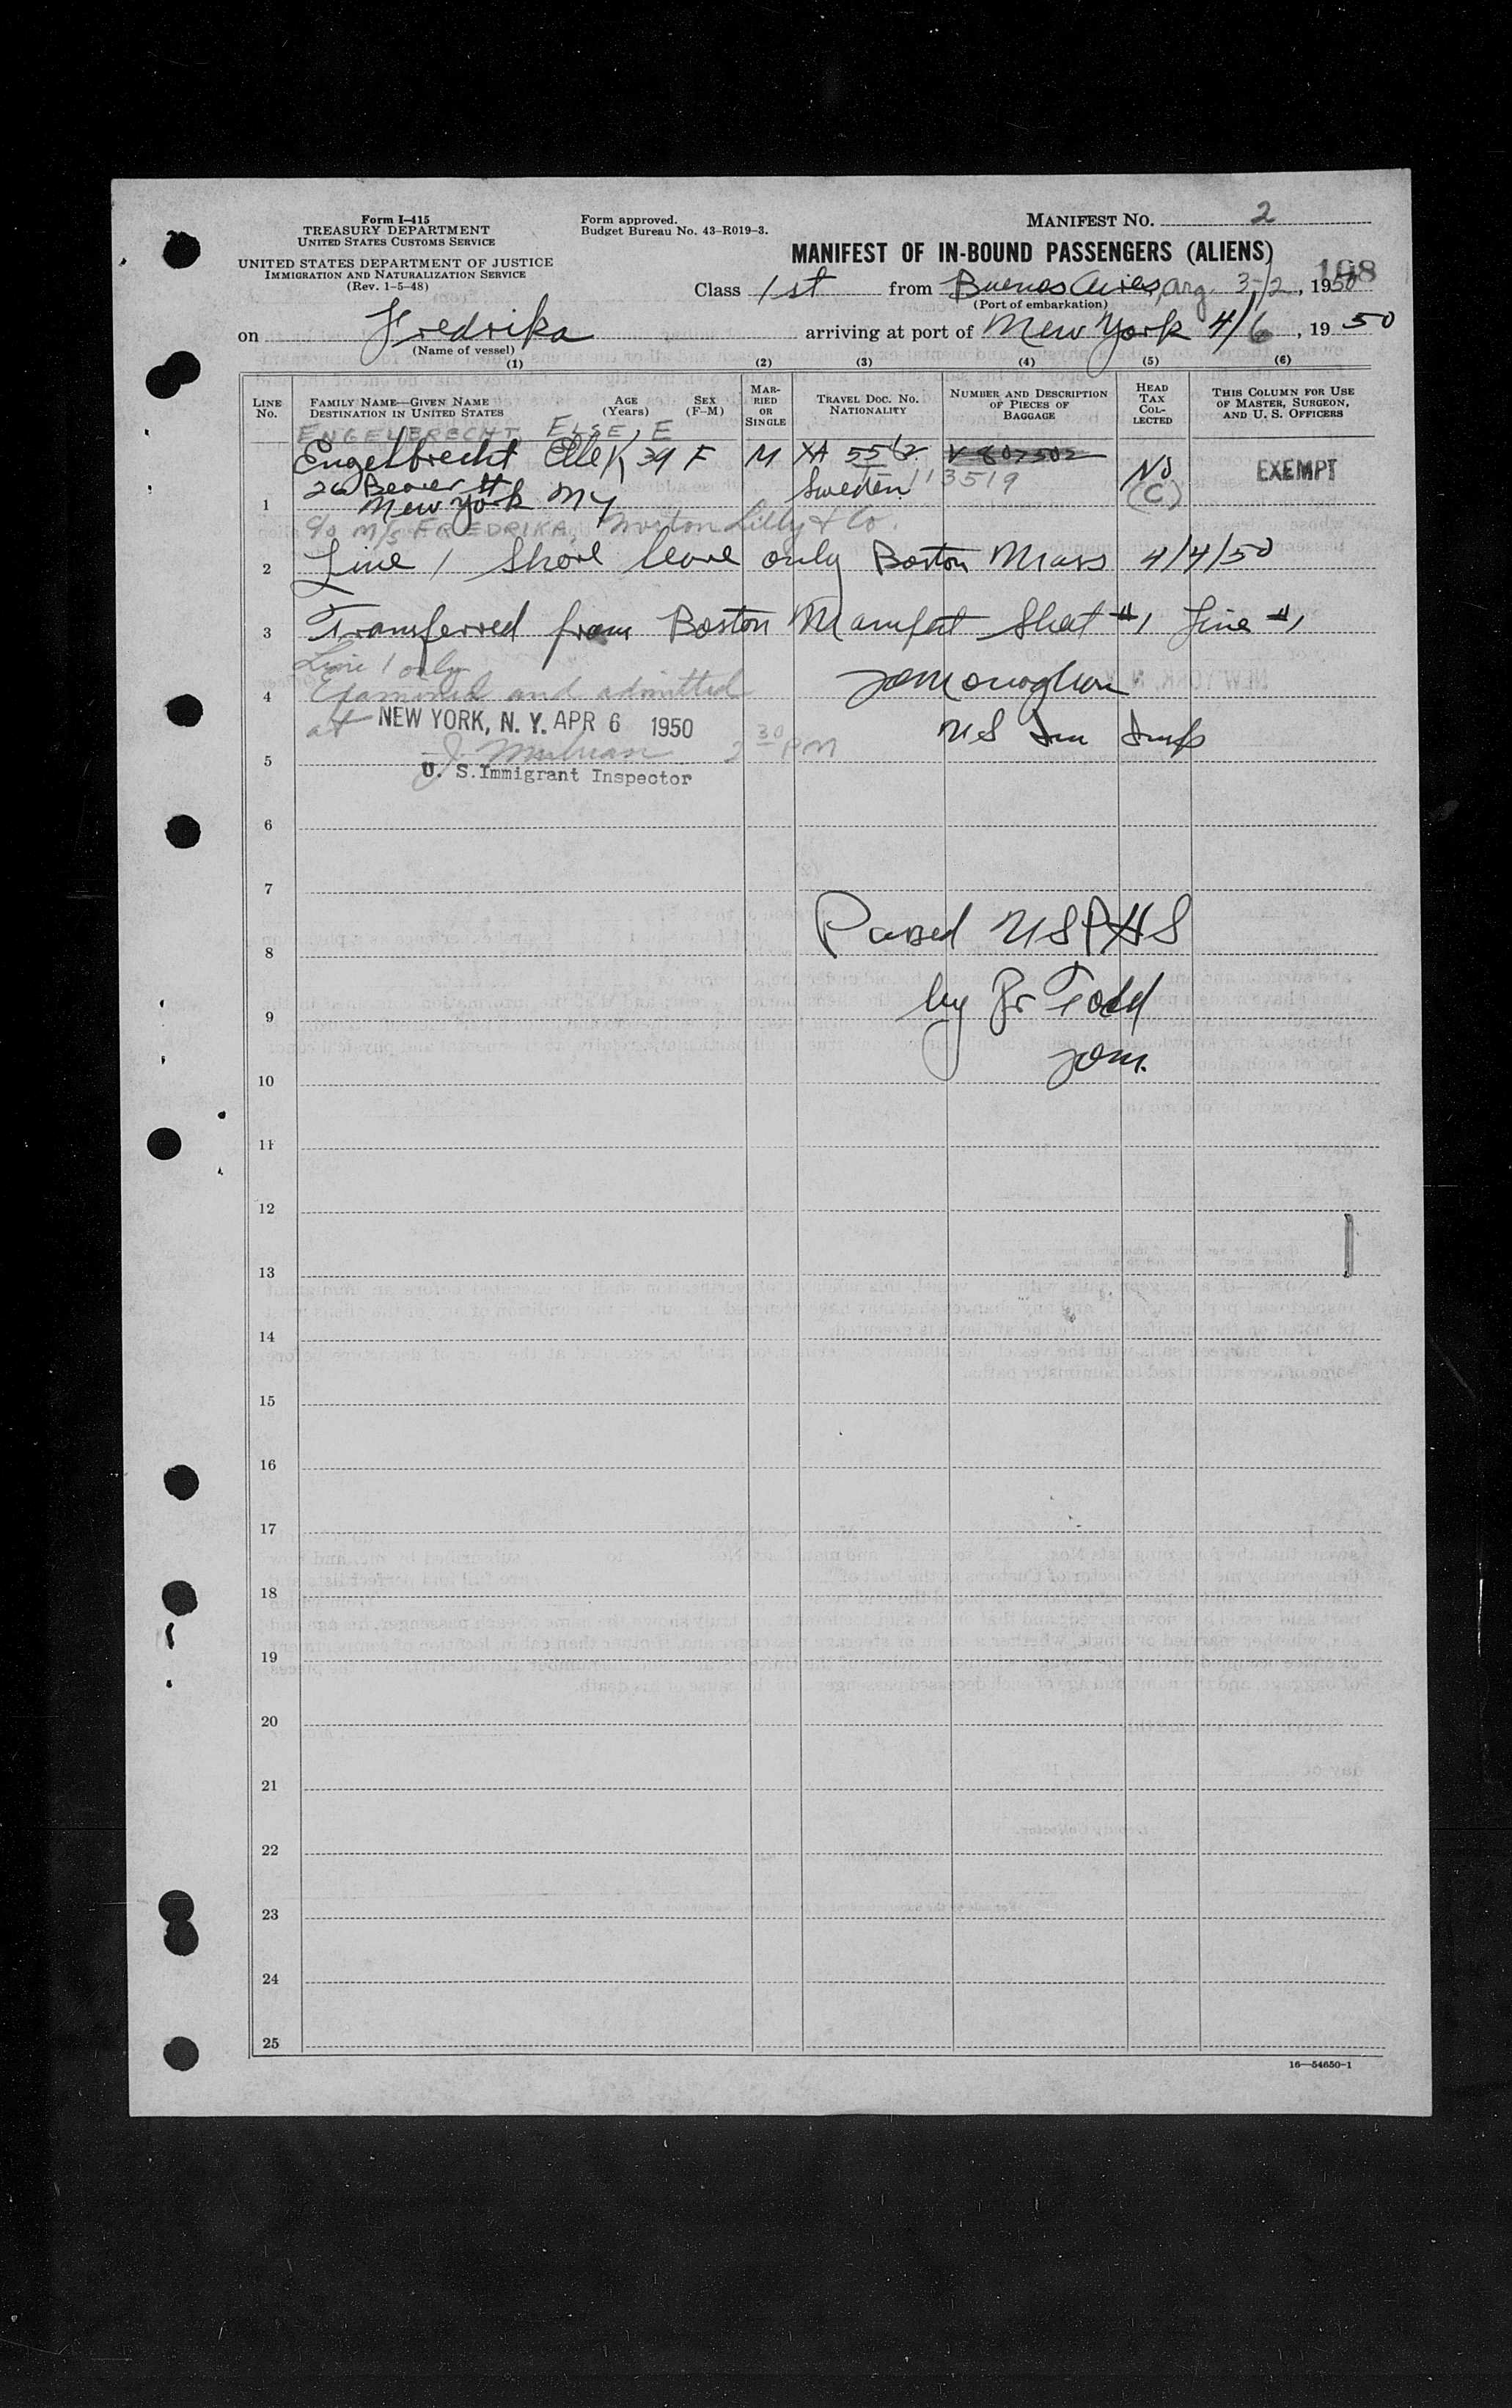 Form I-415
TREASURY DEPARTMENT
UNITED STATES CUSTOMS SERVICE
UNITED STATES DEPARTMENT OF JUSTICE
IMMIGRATION AND NATURALIZATION SERVICE
(Rev. 1-5-48)
Form approved.
Budget Bureau No. 43-R019-3.
MANIFEST NO. 2
MANIFEST OF IN-BOUND PASSENGERS (ALIENS)
198
Class 1st from Buenos Aires, Arg. 3/2, 1950
(Port of embarkation)
on Fredrika arriving at port of New York 4/6, 19 50
(Name of vessel)
(1) (2) (3) (4) (5) (6)
LINE No. FAMILY NAME—GIVEN NAME DESTINATION IN UNITED STATES AGE (Years) SEX (F-M) MARRIED OR SINGLE TRAVEL DOC. NO. NATIONALITY NUMBER AND DESCRIPTION OF PIECES OF BAGGAGE HEAD TAX COLLECTED THIS COLUMN FOR USE OF MASTER, SURGEON, AND U. S. OFFICERS
ENGELBRECHT, ELSE, E
Engelbrecht Elle K 39 F M XA 5562 V 807502 No EXEMPT
26 Beaver St Sweden 113519 (C)
1 New York NY
c/o M/S FREDRIKA, Norton Lilly & Co.
2 Line 1 Shore leave only Boston Mass 4/4/50
3 Transferred from Boston Manifest Sheet #1 Line #1
Line 1 only
4 Examined and admitted
at NEW YORK, N. Y. APR 6 1950
US Imm Insp
5 2 30 PM
U. S. Immigrant Inspector
6
7
Passed USPHS
8
9 by Dr Todd
JOM.
10
11
12
13
14
15
16
17
18
19
20
21
22
23
24
25
16—54650-1